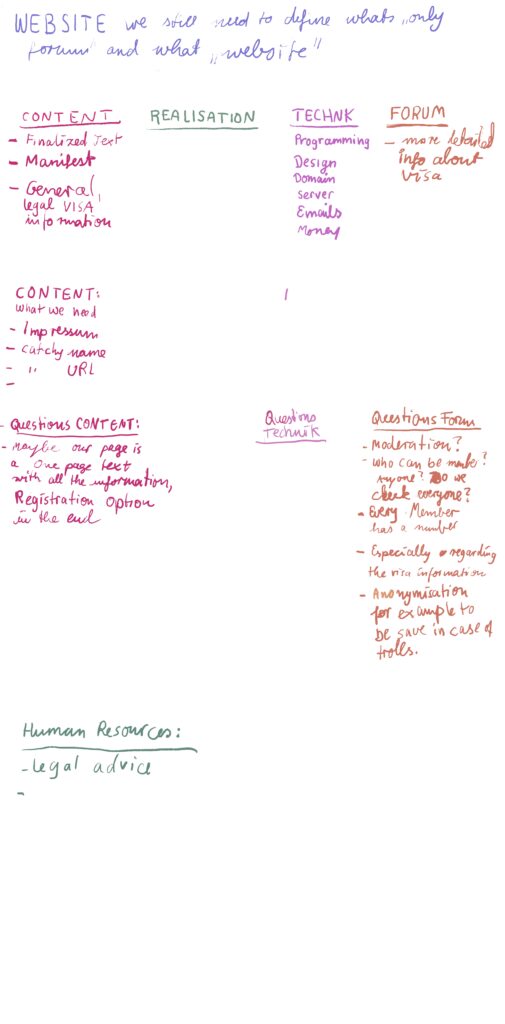 WEBSITE we still need to define whats „only
forum" and what „website"
CONTENT
- Finalized Text
- Manifest
- General,
legal VISA
information
REALISATION
TECHNK
Programming
Design
Domain
Server
Emails
Money
FORUM
- more detailed
info about
Visa
CONTENT:
What we need
- Impressum
- catchy name
- " URL
-
- Questions CONTENT:
- Maybe our page is
a One page text
with all the information,
Registration Option
in the end
Questions
Technik
Questions Forum
- Moderation?
- Who can be member?
Anyone? Do we
check everyone?
- Every Member
has a number
- Especially regarding
the visa information
- Anonymisation
for example to
be save in case of
trolls.
Human Resources:
- legal advice
-